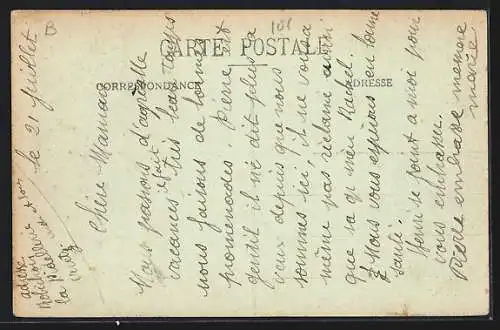 CARTE POSTALE
CORRESPONDANCE
ADRESSE
le 21 juillet
Chère Maman
Nous passons d'agréable
vacances il fait très beau temps
nous faisons de bonnes
promenades. Pierre est
gentil il ne dit plus a
yeux depuis que nous
sommes ici, il ne vous a
même pas réclamé ainsi
que sa qu mère Rachel.
Nous vous espérons en bonne
santé.
Henri se joint a moi pour
vous embrasser.
Pierre embrasse memere
marie
adresse
la